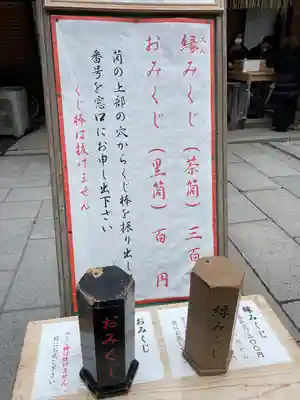 縁みくじ（茶筒）三百
えん
おみくじ（黒筒）百 円
筒の上部の穴からくじ棒を振り出し
番号を窓口にお申し出下さい
くじ棒は抜けません
おみくじ
縁みくじ
おみくじ
縁みくじ